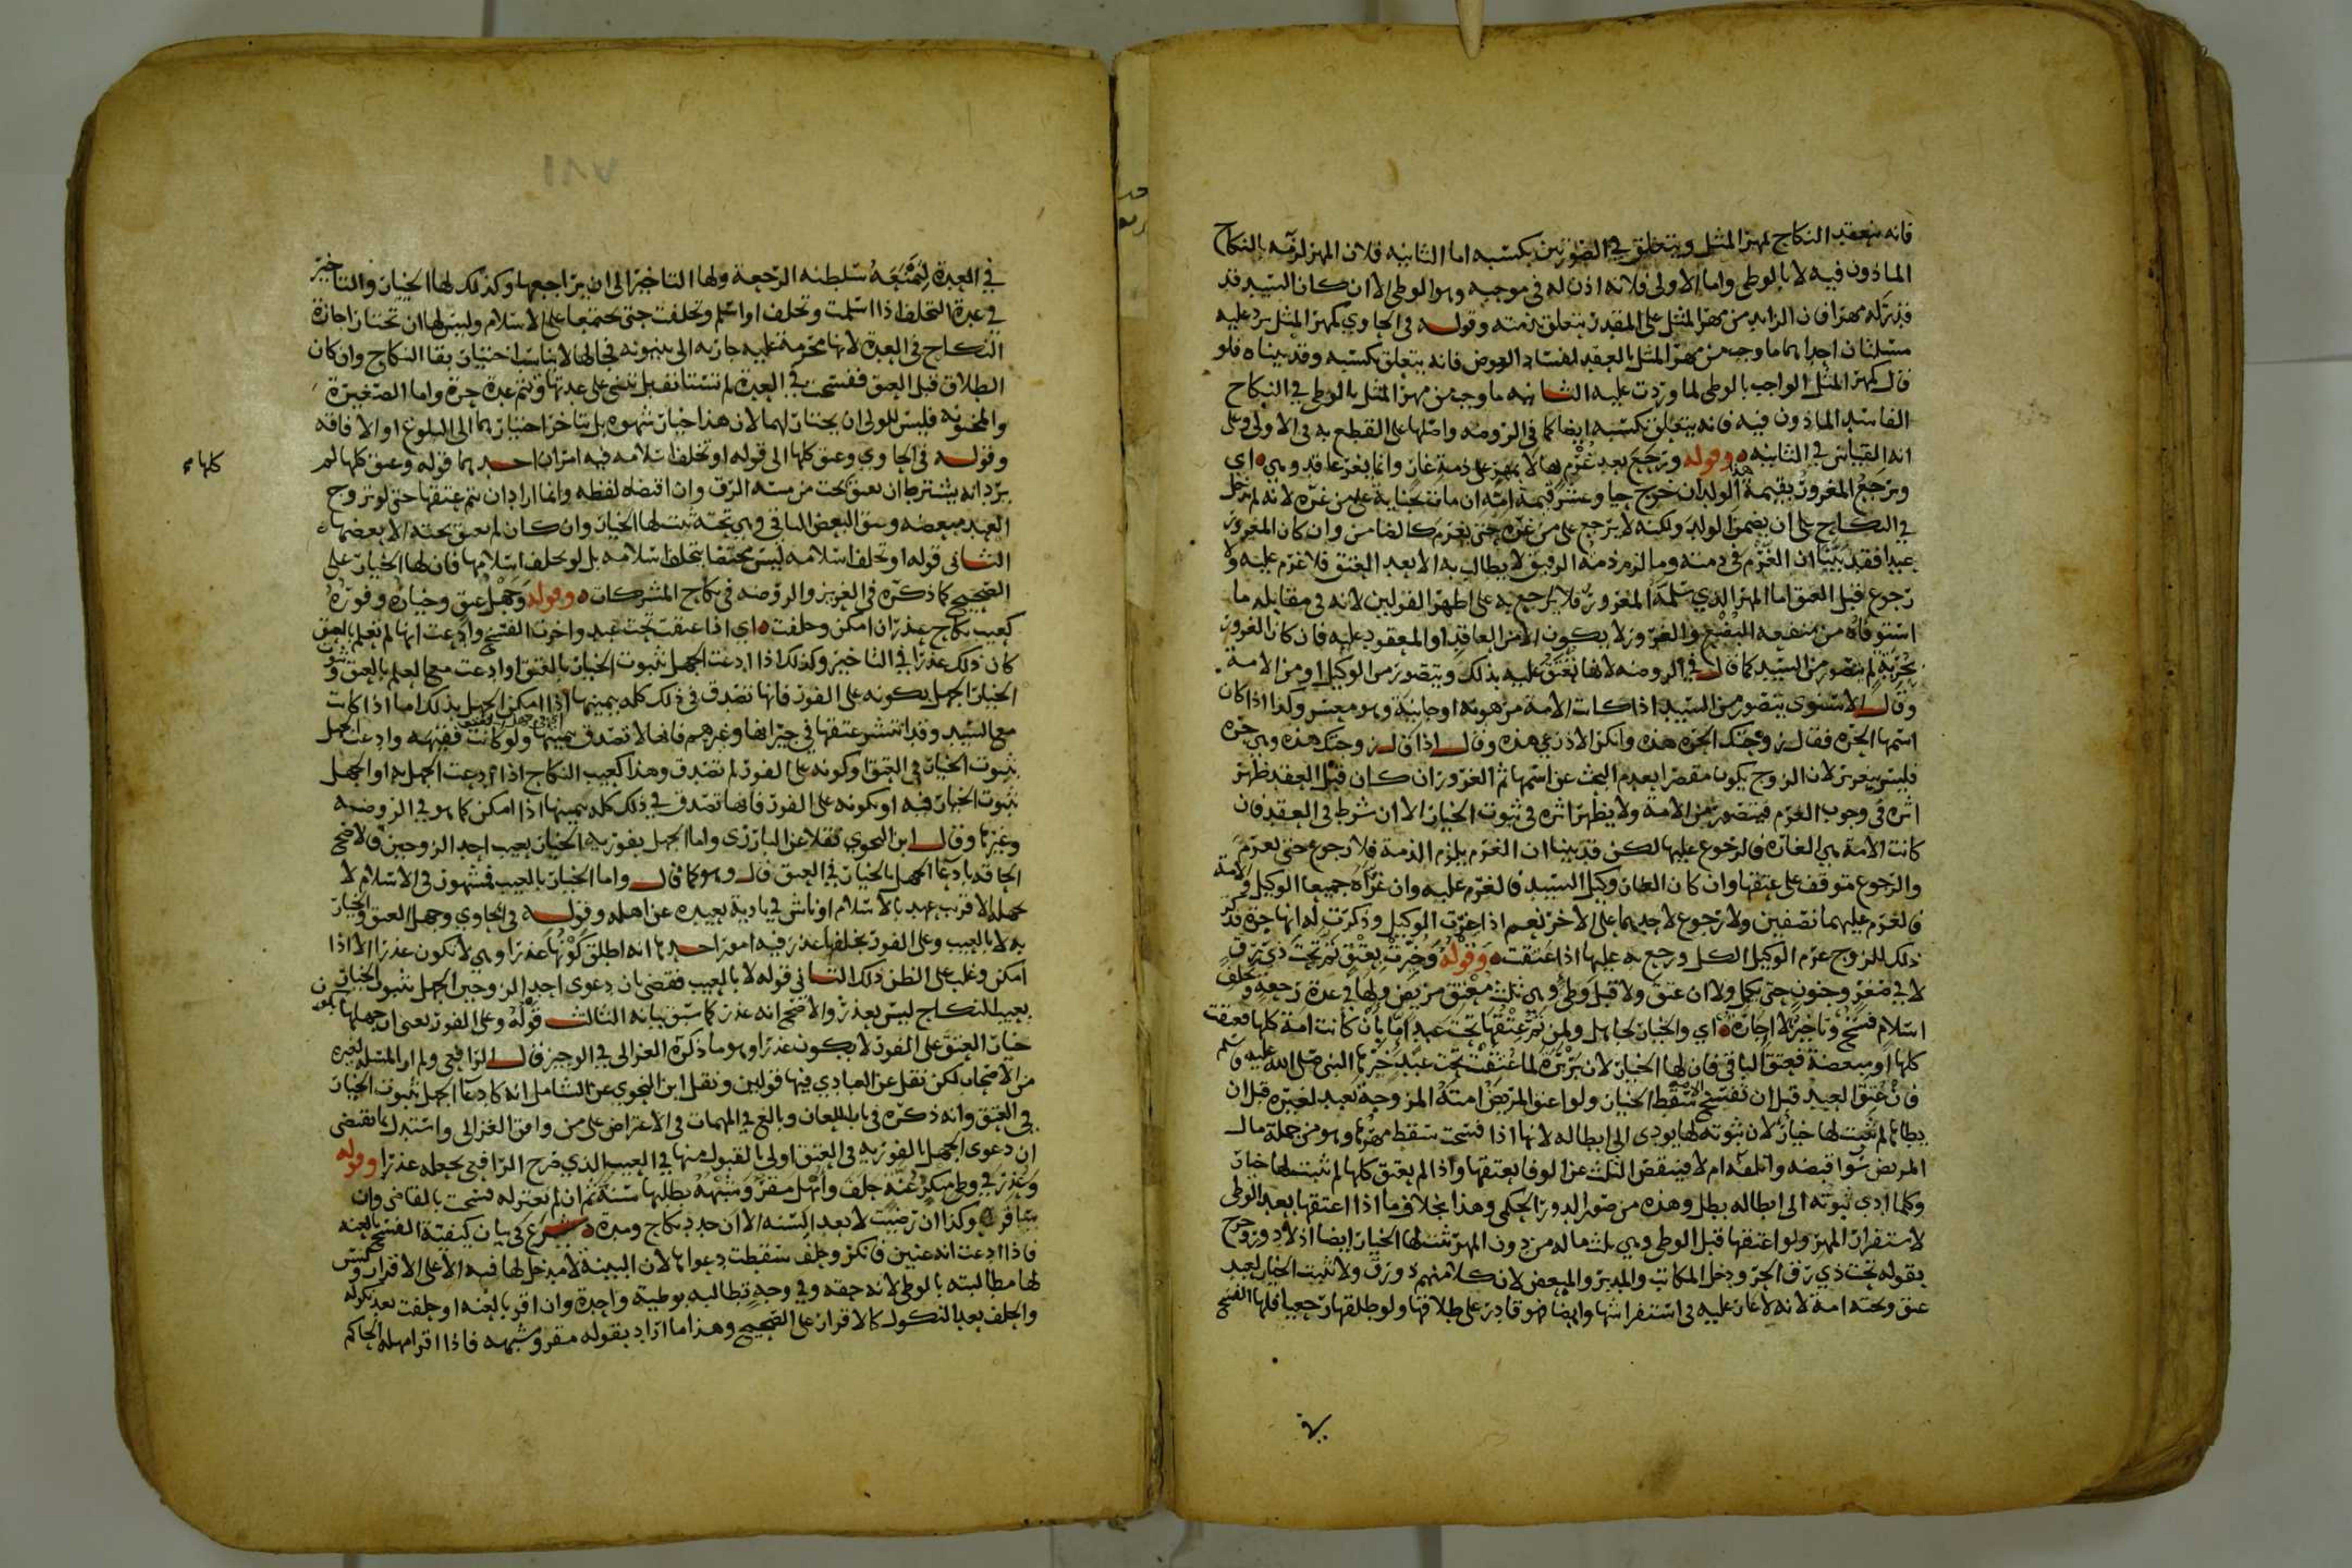 فانه ينعقد النكاح بمهر المثل ويتعلق في الصورتين بكسبه اما الثانيه فلان المهر لزمه بالنكاح
الماذون فيه لا بالوطي واما الاولى فلانه اذن له في موجبه وهو الوطي الا ان كان السيد قد
قدر له مهرا فان الزايد من مهر المثل على المقدر يتعلق بذمته وقوله في الحاوي كمهر المثل يرد عليه
مسئلتان احداهما ما وجب من مهر المثل بالعقد لفساد العوض فانه يتعلق بكسبه وقد بيناه فلو
قال كمهر المثل الواجب بالوطي لما وردت عليه الثانيه ما وجب من مهر المثل بالوطي في النكاح
الفاسد الماذون فيه فانه يتعلق بكسبه ايضا كما في الروضه واصلها على القطع به في الاولى وعلى
انه القياس في الثانيه ه وقوله ورجع بعد غرم لها لا بمهر على ذمة غار وانما يغر عاقد وهي ه اي
ويرجع المغرور بقيمة الولد ان خرج حيا وعشر قيمة امه ان مات بجناية على من غره لانه لم يدخل
في النكاح على ان يضمن الولد ولكنه لا يرجع على من غره حتى يغرم كالضامن وان كان المغرور
عبدا فقد بينا ان الغرم في ذمته وما لزم ذمة الرقيق لا يطالب به الا بعد العتق فلا غرم عليه ولا
رجوع قبل العتق اما المهر الذي سلمه المغرور فلا يرجع به على اظهر القولين لانه في مقابله ما
استوفاه من منفعه البضع والغرور لا يكون الا من العاقد او المعقود عليه فان كان الغرور
بحرية لم يتصور من السيد كما قال في الروضه لانها تعتق عليه بذلك ويتصور من الوكيل او من الامة
وقال الاسنوي يتصور من السيد اذا كانت الامة مرهونه او جانية وهو معسر وكذا اذا كان
اسمها الحره فقال زوجتك الحره هذه وانكر الاذرعي هذه وقال اذا قال زوجتك هذه وهي حره
فليس بتغرير لان الزوج يكون مقصرا بعدم البحث عن اسمها ثم الغرور ان كان قبل العقد ظهر
اثره في وجوب الغرم فيتصور من الامة ولا يظهر اثره في ثبوت الخيار الا ان شرط في العقد فان
كانت الامة هي الغاره فالرجوع عليها لكن قد بينا ان الغرم يلزم الذمة فلا رجوع حتى تغرم
والرجوع متوقف على عتقها وان كان الغار وكيل السيد فالغرم عليه وان غراه جميعا الوكيل والامة
فالغرم عليهما نصفين ولا رجوع لاحدهما على الاخر نعم اذا اخبرت الوكيل وذكرت له انها حرة فذكر
ذلك للزوج غرم الوكيل الكل ورجع به عليها اذا عتقت ه وقوله وخيرت بعتق تم تحت ذي رق
لا في صغر وجنون حتى يكملا ولا ان عتق ولا قبل وطئ وهي ثلث معتق مريض ولها في عدة رجعه وتخلف
اسلام فسخ وتاخير لا اجازه ه اي والخيار لحامل ولمن تم عتقها تحت عبد اما بان كانت امة كلها فعتقت
كلها او مبعضة فعتق الباقي فان لها الخيار لان بريرة لما عتقت تحت عبد خيرها النبي صلى الله عليه وسلم
فان عتق العبد قبل ان تفسخ الامة سقط الخيار ولو اعتق المريض امته المزوجة بعبد لغيره قبل ان
يطاها لم يثبت لها خيار لان ثبوته لها يودي الى ابطاله لانها اذا فسخت سقط مهرها وهو من جملة مال
المريض سوا قبضه واتلفه ام لا فينقص الثلث عن الوفا بعتقها واذا لم يعتق كلها لم يثبت لها خيار
وكلما ادى ثبوته الى ابطاله بطل وهذه من صور الدور الحكمي وهذا بخلاف ما اذا اعتقها بعد الوطي
لاستقرار المهر ولو اعتقها قبل الوطي وهي ثلث ماله من دون المهر ثبت لها الخيار ايضا اذ لا دور وخرج
بقوله تحت ذي رق الحر ودخل المكاتب والمدبر والمبعض لان كلا منهم ذو رق ولا يثبت الخيار لعبد
عتق وتحته امة لانه لا عار عليه في استفراشها وايضا هو قادر على طلاقها ولو طلقها رجعيا فلها الفسخ
في
في العدة لتمنعه سلطنه الرجعة ولها التاخير الى ان يراجعها وكذلك لها الخيار والتاخير
في عدة التخلف اذا اسلمت وتخلف او اسلم وتخلفت حتى يجتمعا على الاسلام وليس لها ان تختار اجازة
النكاح في العدة لانها محرمة عليه جاريه الى بينونه فحالها لا يناسب اختيار بقا النكاح وان كان
الطلاق قبل العتق ففسخت في العدة لم تستانف بل تبني على عدتها وتتم عدة حرة واما الصغيرة
والمجنونه فليس للولي ان يختار لهما لان هذا خيار شهوه بل يتاخر اختيارهما الى البلوغ او الافاقه
وقوله في الحاوي وعتق كلها الى قوله او تخلف اسلامه فيه امران احدهما قوله وعتق كلها لم
كلها
يرد انه يشترط ان يعتق تحت من مسه الرق وان اقتضاه لفظه وانما اراد ان يتم عتقها حتى لو تزوج
العبد مبعضه وعتق البعض الباقي وهي تحته ثبت لها الخيار وان كان لم يعتق تحته الا بعضها ه
الثاني قوله او تخلف اسلامه ليس مختصا بتخلف اسلامه بل لو تخلف اسلامها فان لها الخيار على
الصحيح كما ذكره في العزيز والروضه في نكاح المشركات ه وقوله وجهل عتق وخياره وفوره
كعيب نكاح عذر ان امكن وحلفت ه اي اذا عتقت تحت عبد واخرت الفسخ وادعت انها لم تعلم بالعتق
كان ذلك عذرا في التاخير وكذلك اذا ادعت الجهل بثبوت الخيار بالعتق او ادعت مع العلم بالعتق وثبوت
الخيار الجهل بكونه على الفور فانها تصدق في ذلك كله بيمينها اذا امكن الجهل بذلك اما اذا كانت
مع السيد وقد انتشر عتقها في جيرانها وغيرهم فانها لا تصدق بيمينها ولو كانت فقيهه وادعت الجهل
بثبوت الخيار في العتق او كونه على الفور لم تصدق وهذا كعيب النكاح اذا ادعت الجهل به او الجهل
بثبوت الخيار فيه او بكونه على الفور فانها تصدق في ذلك كله بيمينها اذا امكن كما هو في الروضه
وغيرها وقال ابن النحوي نقلا عن البارزي واما الجهل بفورية الخيار بعيب احد الزوجين فالاصح
الحاقه بادعا الجهل بالخيار في العتق قال وهو كما قال واما الخيار بالعيب فمشهور في الاسلام لا
يجهله الا قريب عهد بالاسلام او ناش في بادية بعيده عن اهله وقوله في الحاوي وجهل العتق والخيار
به لا بالعيب وعلى الفور بخلفها عذر فيه امور احدها انه اطلق كونها عذرا وهي لا تكون عذرا الا اذا
امكن وغلب على الظن ذلك الثاني قوله لا بالعيب فقضي بان دعوى احد الزوجين الجهل بثبوت الخيار
بعيب النكاح ليس بعذر والاصح انه عذر كما سبق بيانه الثالث قوله وعلى الفور يعني ان جهلها بكون
خيار العتق على الفور لا يكون عذرا وهو ما ذكره الغزالي في الوجيز قال الرافعي ولم ار المسئله لغيره
من الاصحاب لكن نقل عن العبادي فيها قولين ونقل ابن النحوي عن الشامل انه كادعا الجهل بثبوت الخيار
في العتق وانه ذكره في باب اللعان وبالغ في المهمات في الاعتراض على من وافق الغزالي واستدل بما يقتضي
ان دعوى الجهل بالفوريه في العتق اولى بالقبول منها في العيب الذي صرح الرافعي بجعله عذرا وقوله
وعذر في وطئ منكر عنة حلف وامهل مقر ومشبهه بطلبها سنة ثم ان لم يعتزله فسخت بالقاضي وان
سافر ه وكذا ان رضيت لا بعد السنه الا ان جدد نكاح ومدة ه شرع في بيان كيفية الفسخ بالعنه
فاذا ادعت انه عنين فانكر وحلف سقطت دعواها لان البينة لا مدخل لها فيه الا على الاقرار وليس
لها مطالبته بالوطي لانه حقه وفي وجه تطالبه بوطية واحدة وان اقر بالعنه او حلفت بعد نكوله
والحلف بعد النكول كالاقرار على الصحيح وهذا ما اراد بقوله مقر ومشبهه فاذا اقر امهله الحاكم